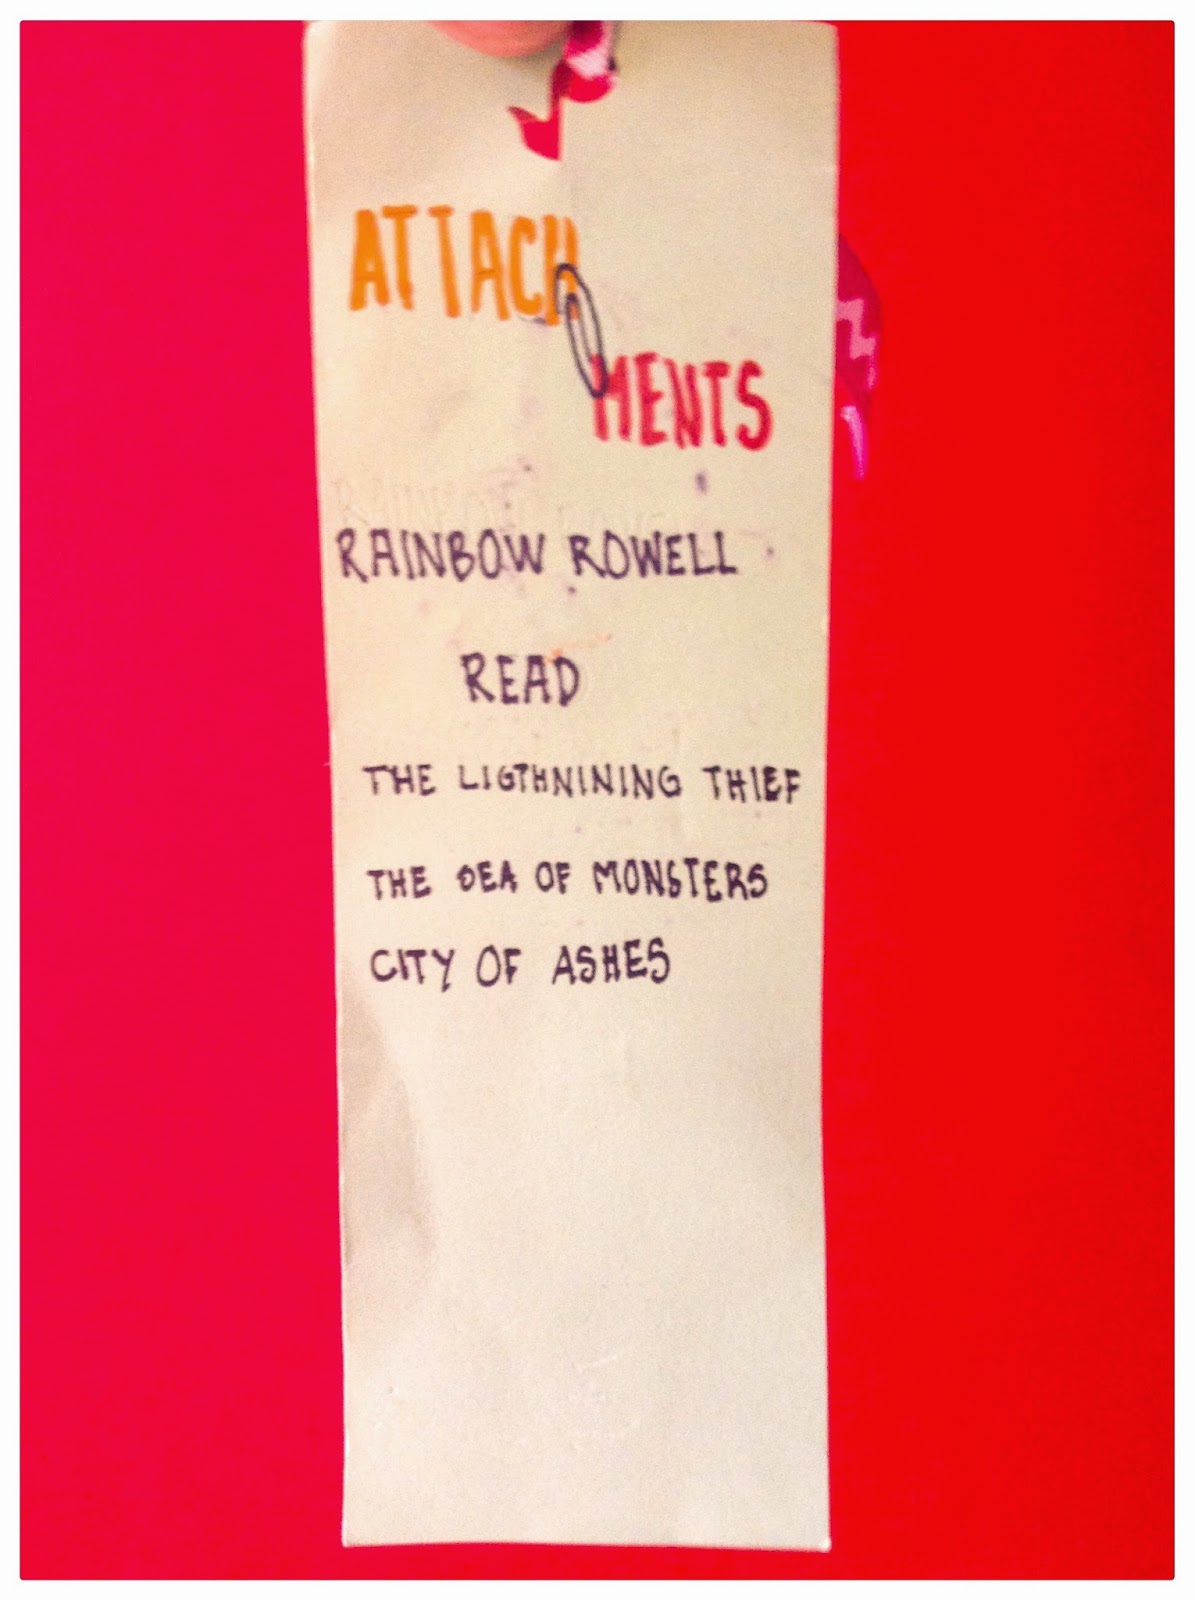 ATTACH
MENTS
RAINBOW ROWELL
READ
THE LIGTHNINING THIEF
THE SEA OF MONSTERS
CITY OF ASHES